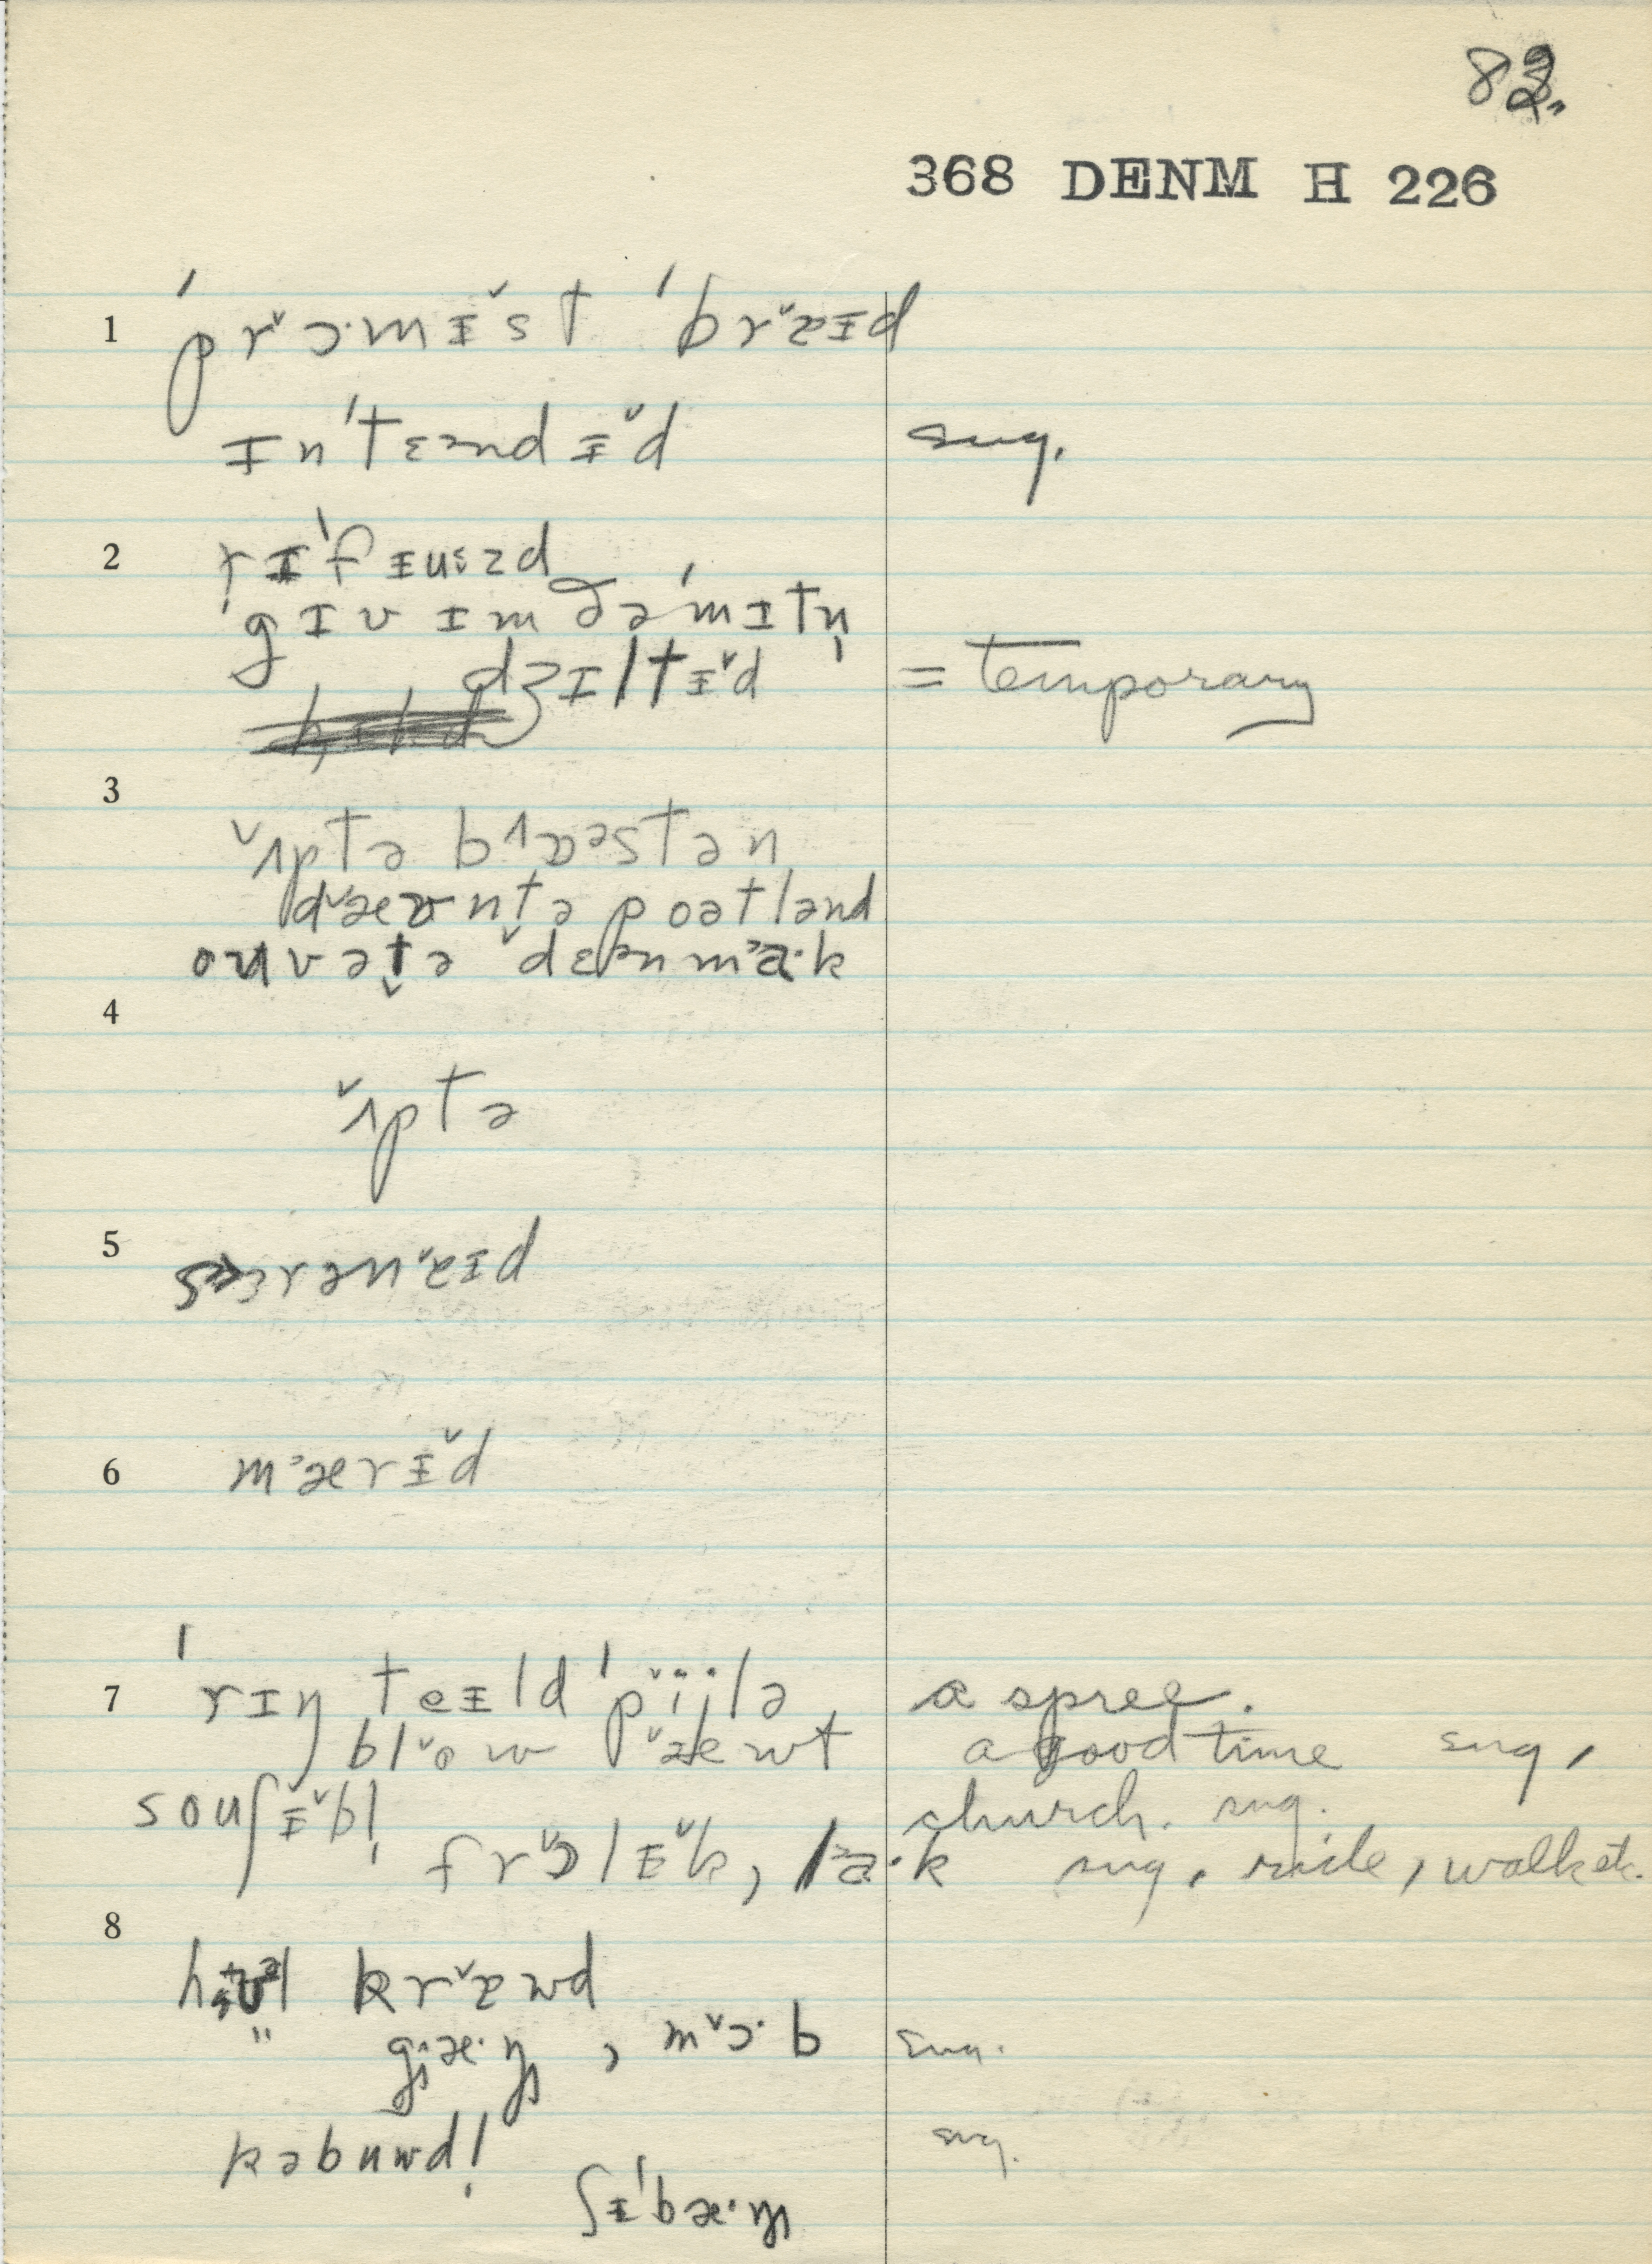 82.
368 DENM H 226
1 ˈprᵛɔ·mɪ̵̌st ˈbrᵛaɪ̵d
ɪnˈtɛᵊndɪ̵̌d sug.
2 rɪˈfɪ̵uːzd
ˈgɪv ɪm ðəˈmɪtn̩
dʒɪltɪ̵̌d = temporary
3 ᵛʌptə bᶺɒᵊstən
dᵛæʊntə poətlənd
ouvət̬ə ᵛdɛᵊnmᵓa·k
4 ᵛʌptə
5 sɛrənᵛeɪ̵d
6 mᵓærɪ̵̌d
7 ˈrɪŋ teɪ̵ld ˈpᵛiːjlə a spree.
blᵛow ᵛæwt a good time sug.
souʃɪ̵̌bl̩ church. sug.
frᵛɔlɪ̵̌k, lᵓa·k sug. ride, walk etc.
8 krᵛawd
" gi̯æ·ŋ, mᵛɔ·b sug.
kəbuwdl̩ sug.
ʃɪ̵ˈbæ·ŋ